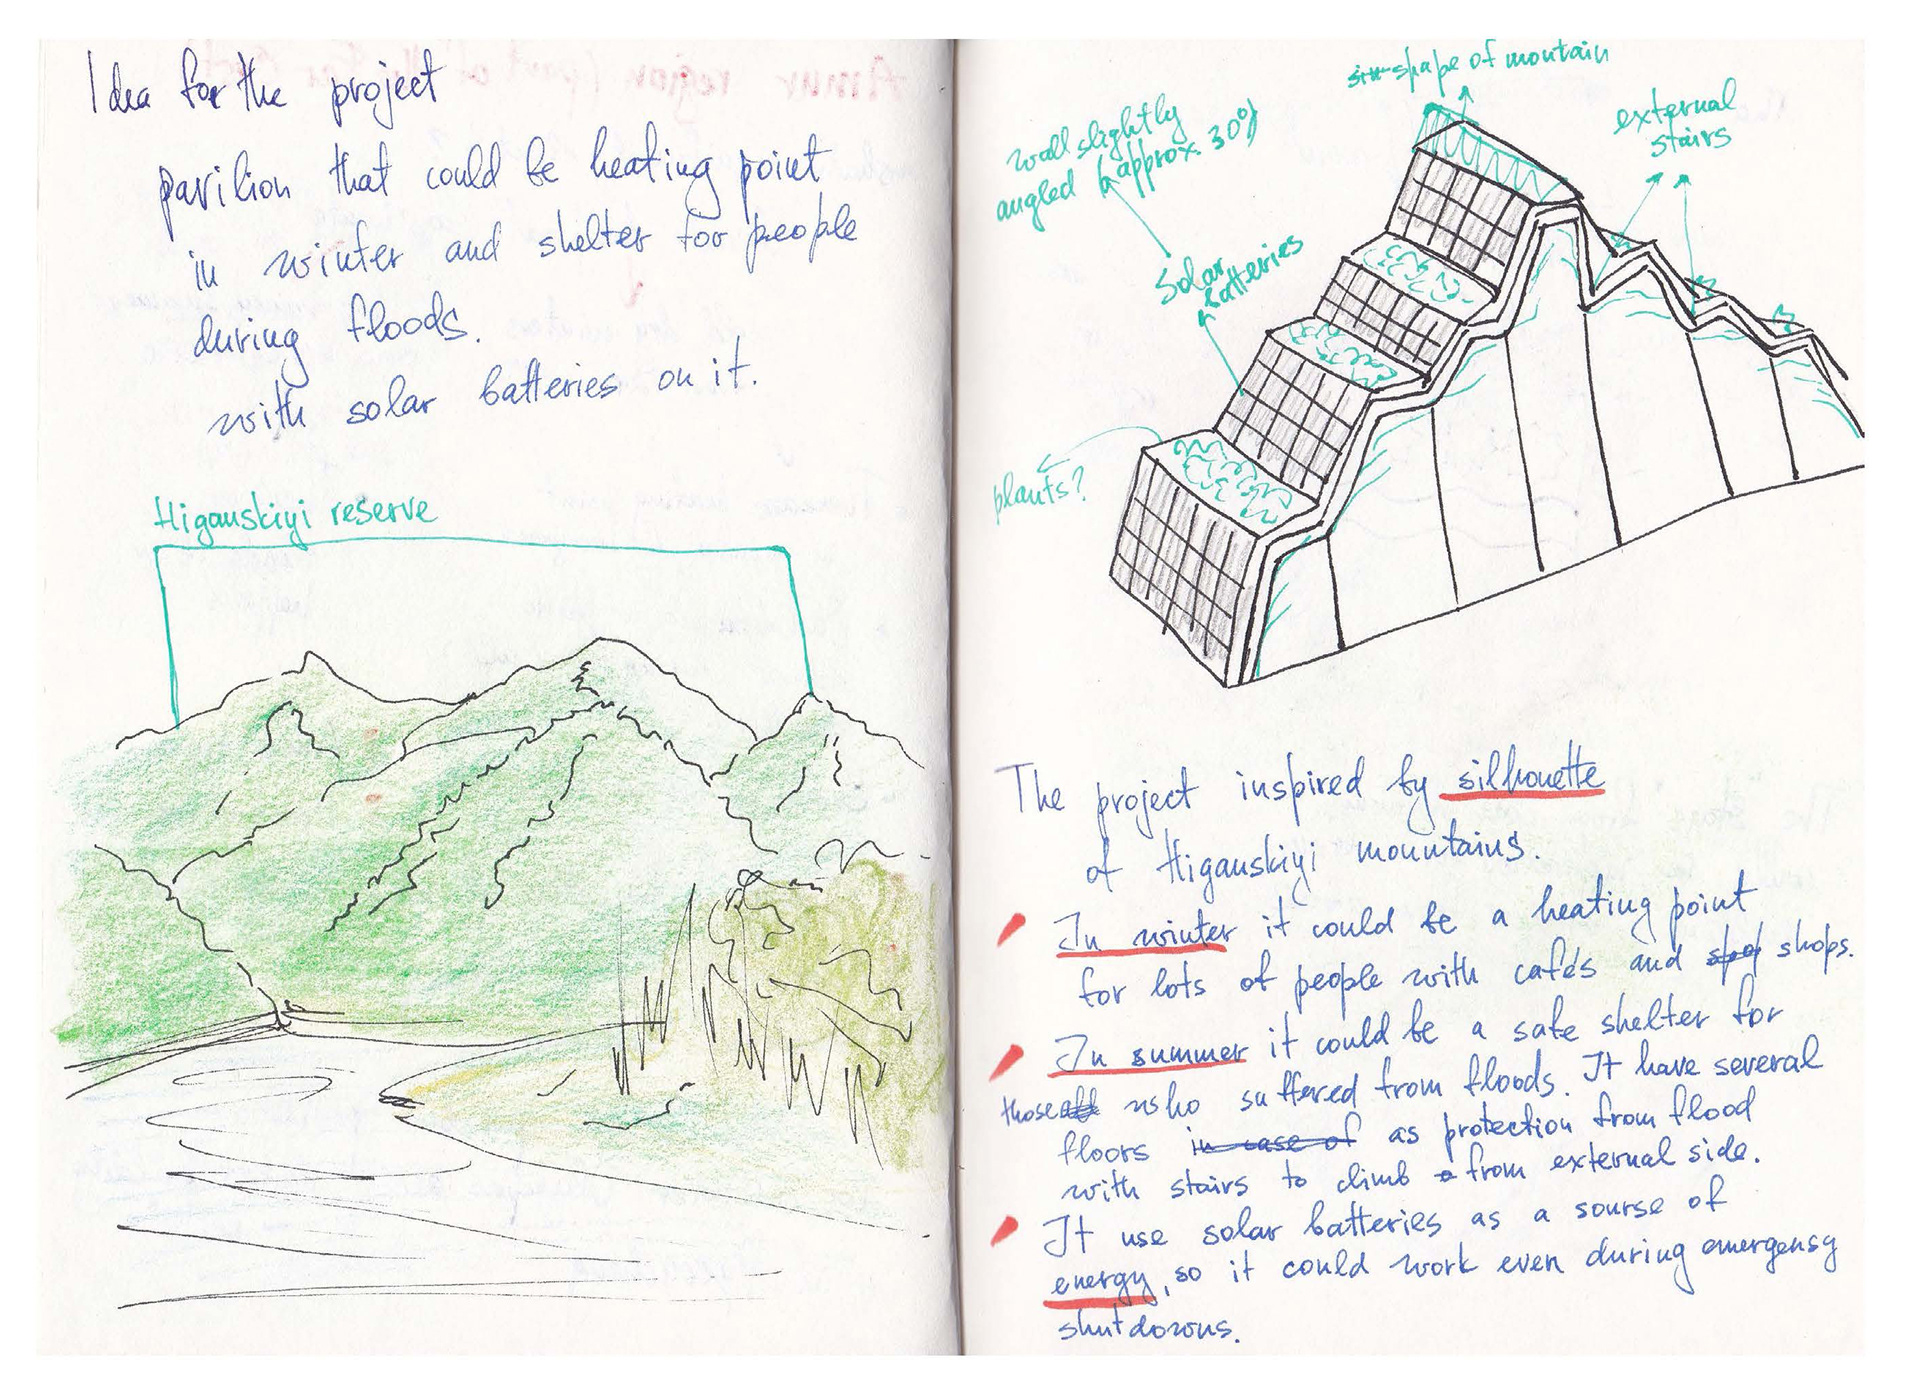 Idea for the project
pavilion that could be heating point
in winter and shelter for people
during floods.
with solar batteries on it.
Higanskiyi reserve
shape of moutain
wall slightly
angled (approx. 30°)
external
stairs
Solar
batteries
plants?
The project inspired by silhouette
of Higanskiyi mountains.
In winter it could be a heating point
for lots of people with cafés and shops.
In summer it could be a safe shelter for
those who suffered from floods. It have several
floors in case of as protection from flood
with stairs to climb from external side.
It use solar batteries as a sourse of
energy, so it could work even during emergensy
shutdowns.